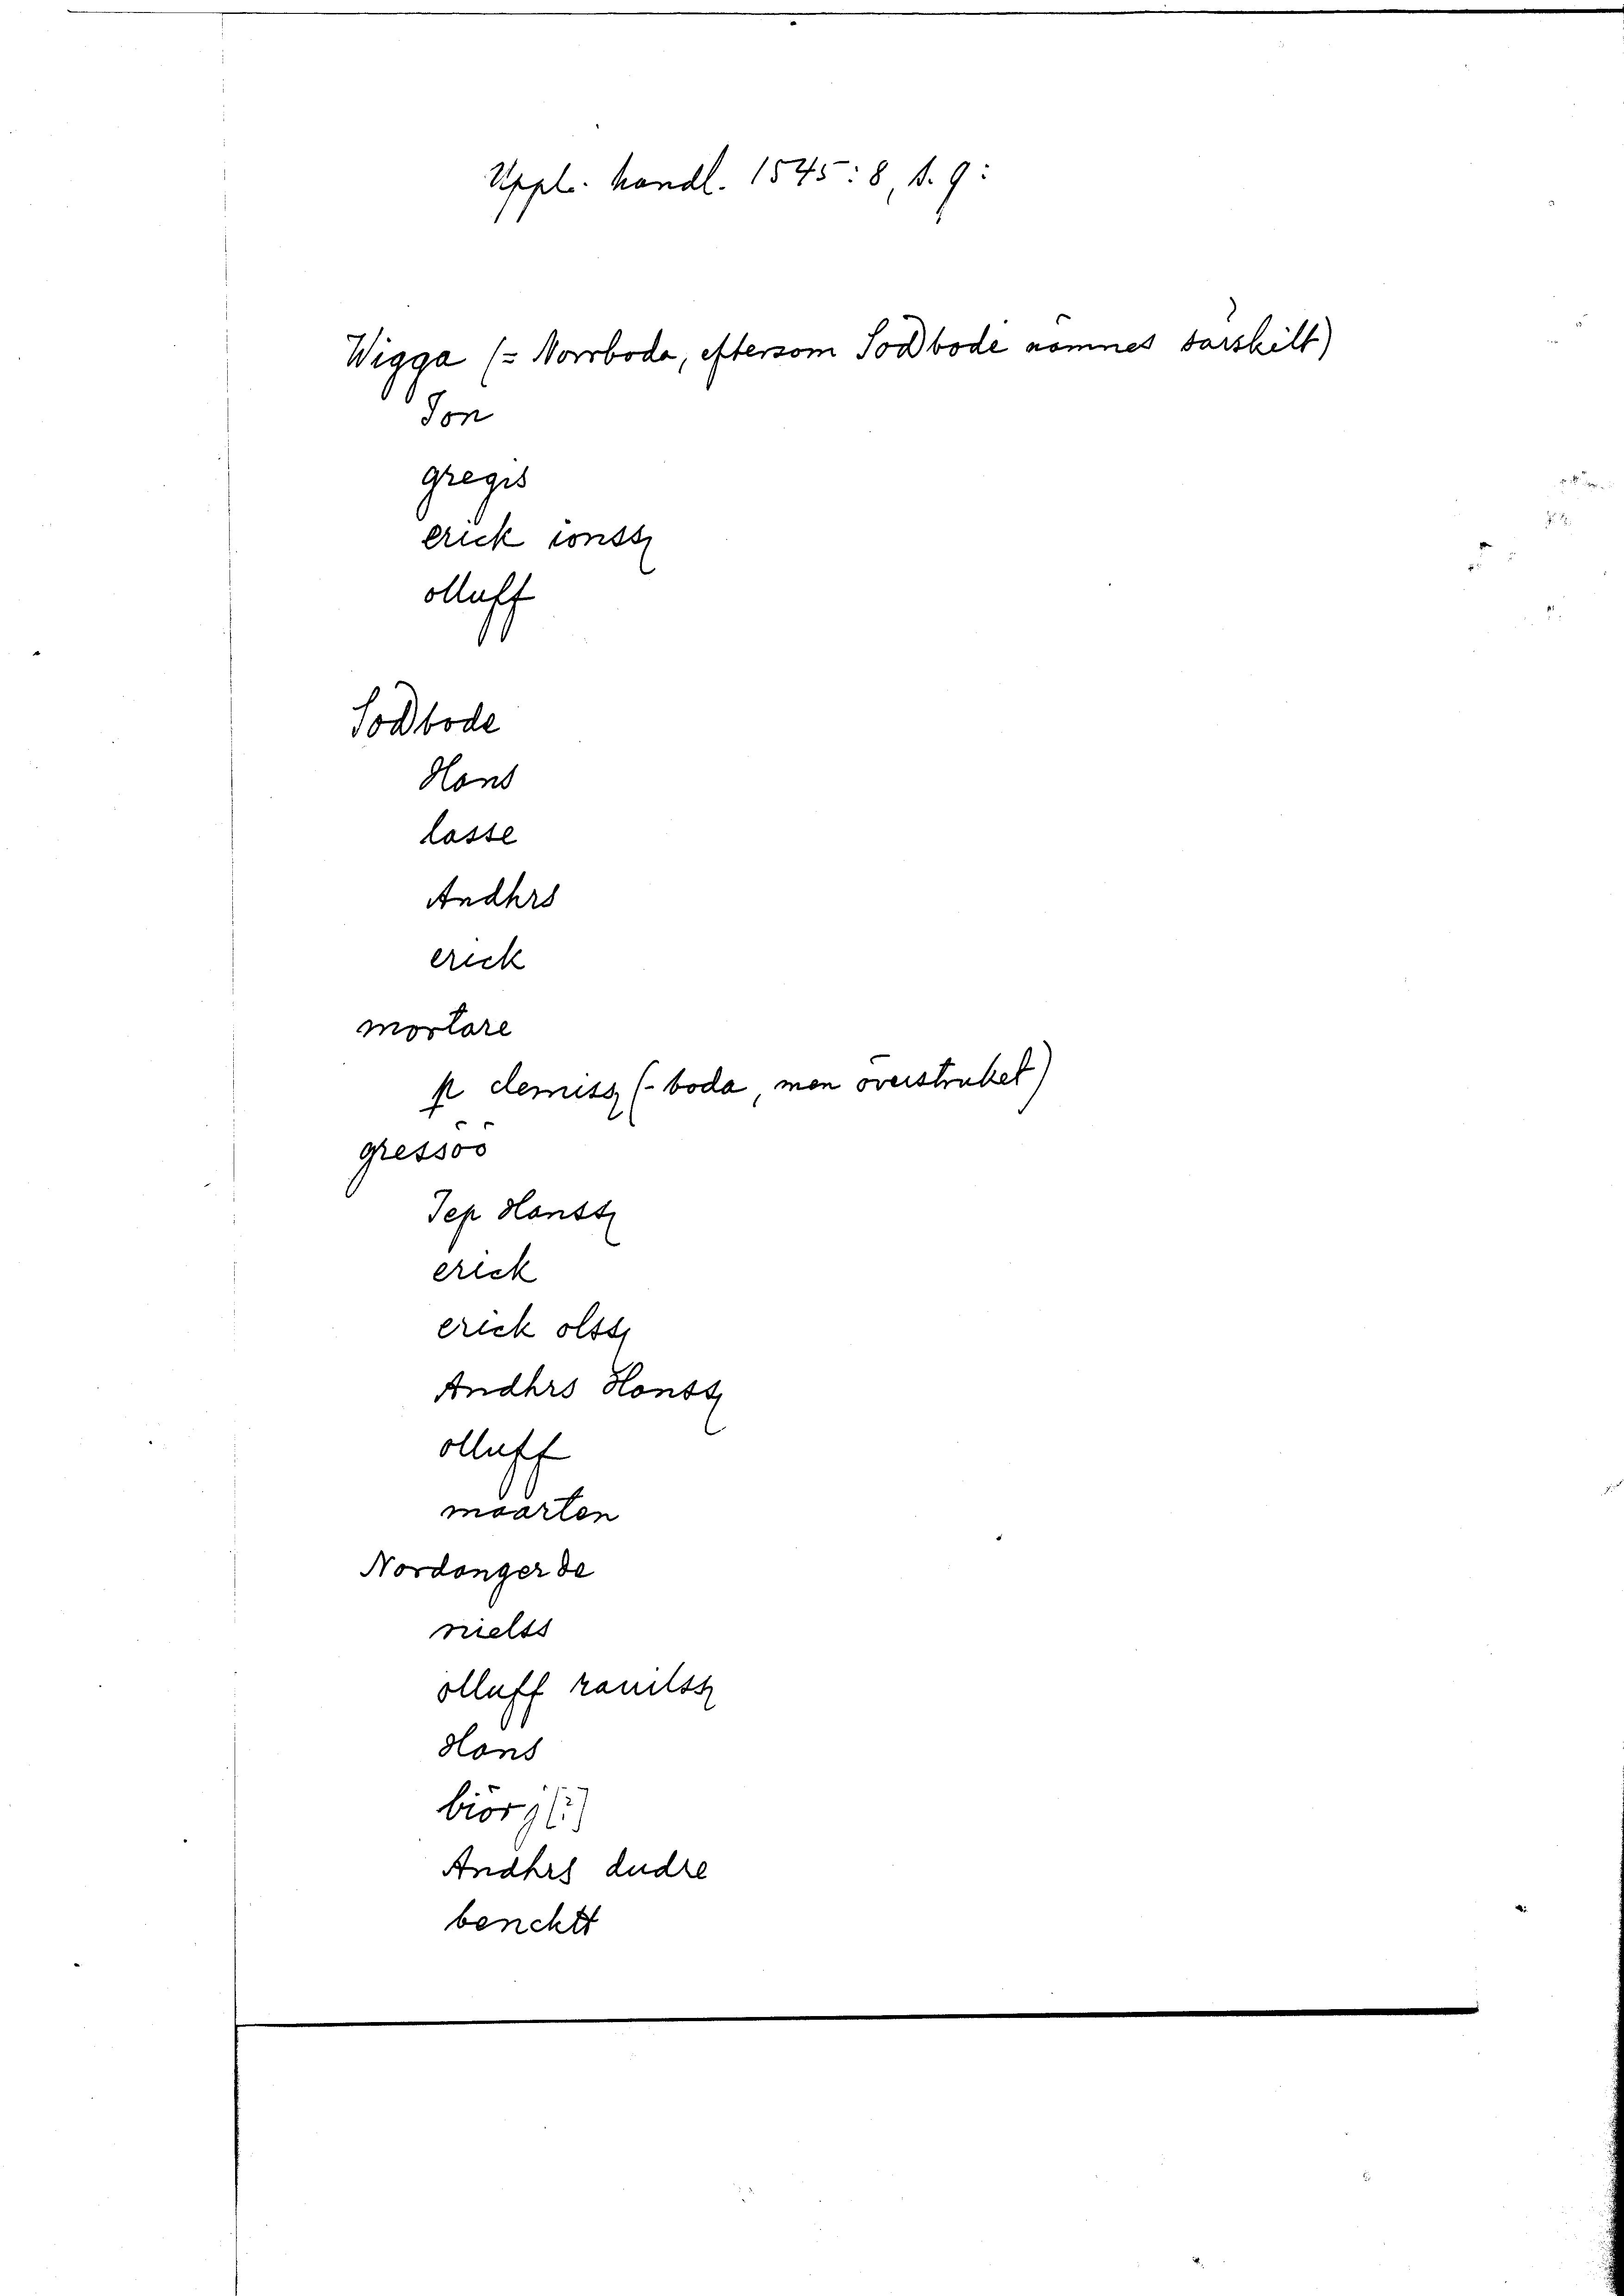 Uppl. handl. 1545:8, s. 9:
Wigga (= Norrboda, eftersom Sodbode nämnes särskilt)
Jon
gregis
erick ionss
olluff
Sodbode
Hans
lasse
Andhrs
erick
morlare
p clemiss (-boda, men överstruket)
gressöö
Jep Hanss
erick
erick olss
Andhrs Hanss
olluff
maarten
Nordangerde
nielss
olluff rauilss
Hans
biörg (?)
Andhrs dudre
benchtt